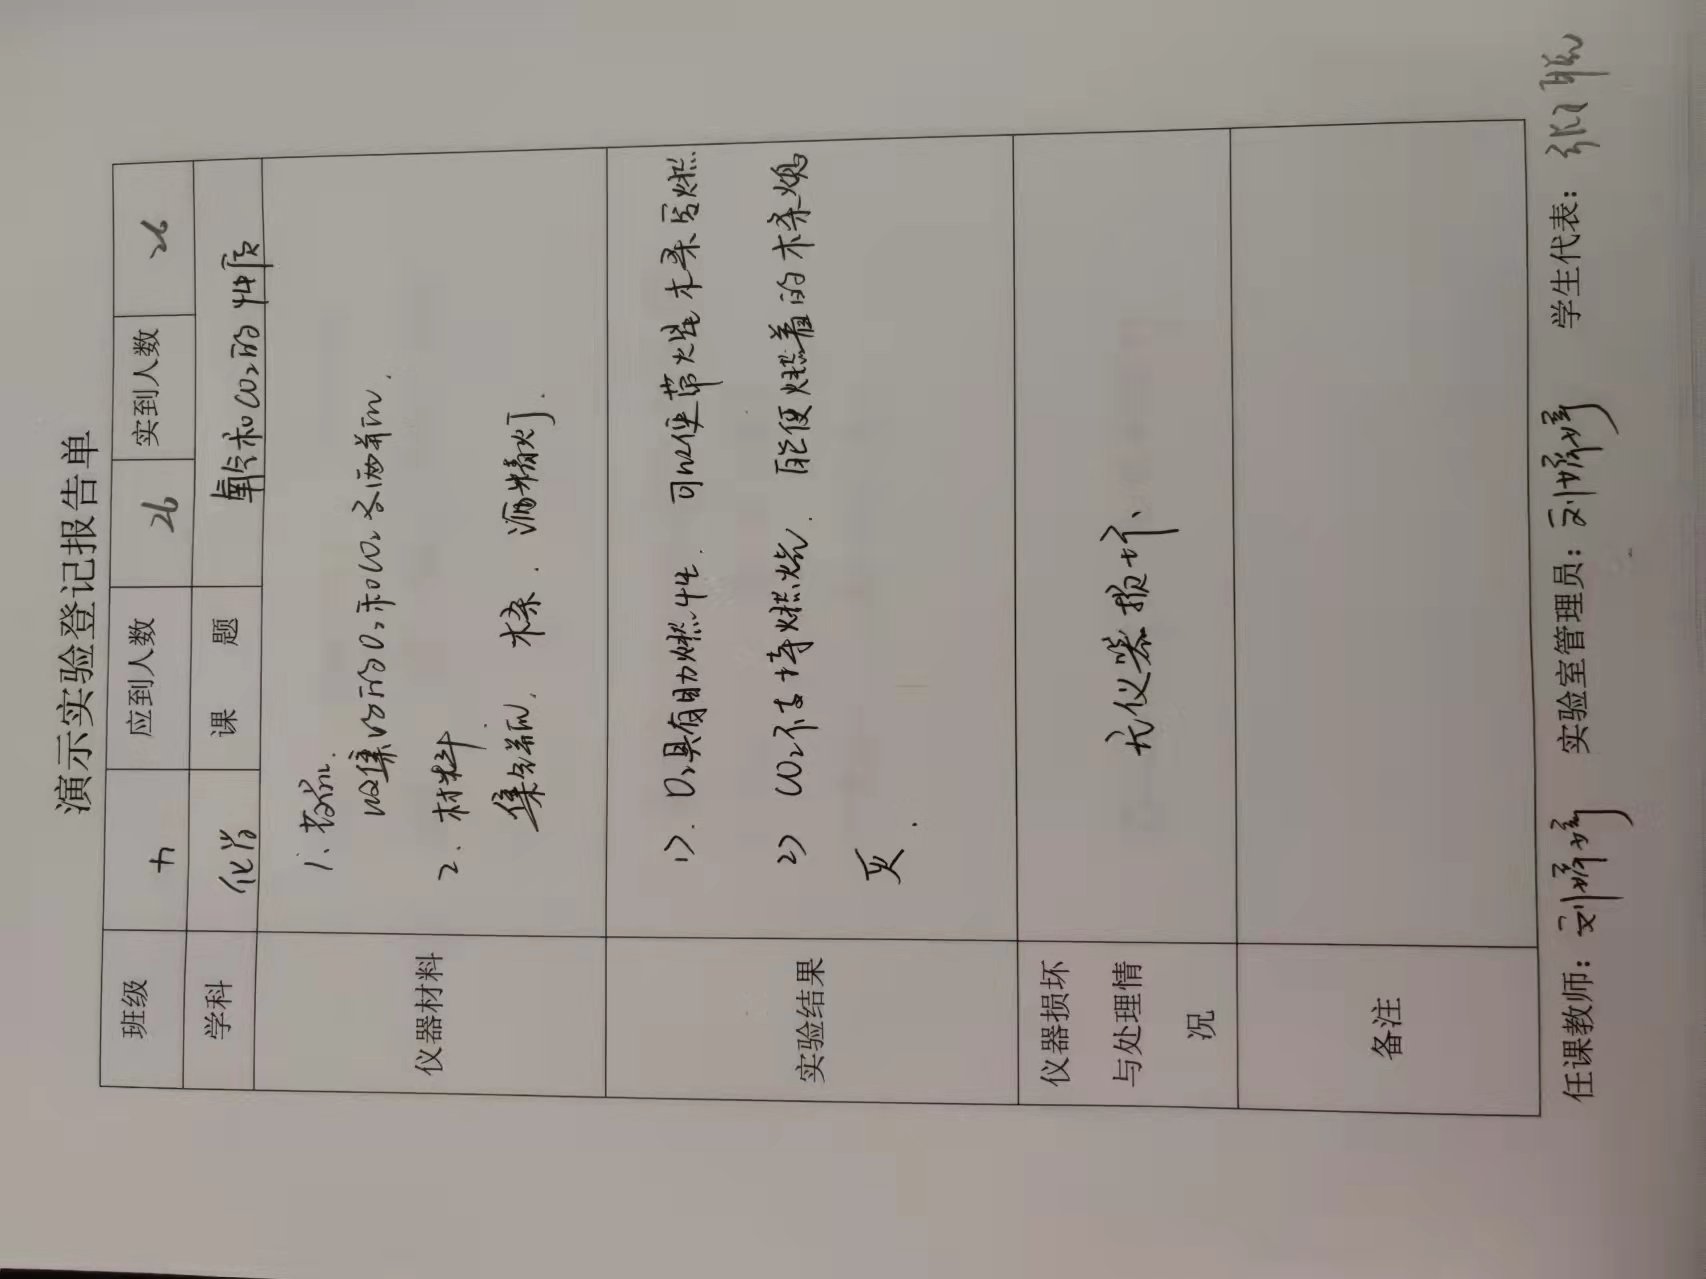 演示实验登记报告单
班级 九 应到人数 26 实到人数 26
学科 化学 课 题 氧气和CO₂的性质
仪器材料
1、药品.
收集好的O₂和CO₂各两瓶.
2. 材料.
集气瓶. 木条. 酒精灯.
实验结果
1). O₂具有助燃性. 可以使带火星木条复燃.
2) CO₂不支持燃烧. 能使燃着的木条熄
灭.
仪器损坏
与处理情
况
无仪器损坏、
备注
任课教师: 刘婷婷 实验室管理员: 刘婷婷 学生代表: 张聪